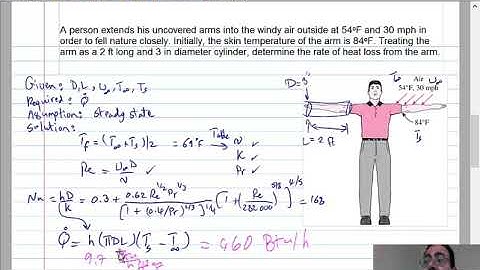 A person extends his uncovered arms into the windy air outside at 54ºF and 30 mph in
order to fell nature closely. Initially, the skin temperature of the arm is 84ºF. Treating the
arm as a 2 ft long and 3 in diameter cylinder, determine the rate of heat loss from the arm.
Given: D, L, U∞, T∞, Ts
Required: Q̇
Assumption: steady state
Solution:
D=3"
L= 2 ft
T∞ Air U∞
54°F, 30 mph
84°F
Ts
Tf = (T∞ + Ts)/2 = 69°F Table → ν ✓
K ✓
Pr ✓
Re = U∞D/ν ✓
Nu = hD/k = 0.3 + 0.62 Re^1/2 Pr^1/3 / [1 + (0.4/Pr)^2/3]^1/4 [1 + (Re/282000)^5/8]^4/5 = 168
Q̇ = h (πDL)(Ts - T∞) = 460 Btu/h
9.7